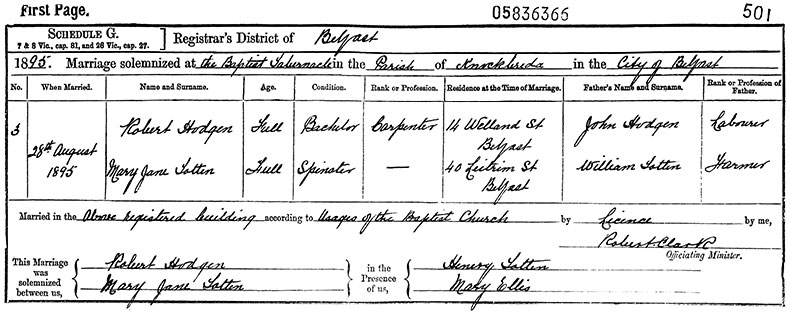 First Page. 05836366 501
SCHEDULE G.
7 & 8 Vic., cap. 81, and 26 Vic., cap. 27.
Registrar's District of Belfast
1895. Marriage solemnized at the Baptist Tabernacle in the Parish of Knockbreda in the City of Belfast
No. When Married. Name and Surname. Age. Condition. Rank or Profession. Residence at the Time of Marriage. Father's Name and Surname. Rank or Profession of Father.
3 28th August 1895 Robert Hodgen Full Bachelor Carpenter 14 Welland St Belfast John Hodgen Labourer
Mary Jane Totten Full Spinster — 40 Leitrim St Belfast William Totten Farmer
Married in the Above registered building according to Usages of the Baptist Church by Licence by me,
Robert Clark
Officiating Minister.
This Marriage was solemnized between us, Robert Hodgen
Mary Jane Totten
in the Presence of us, Henry Totten
Mary Ellis